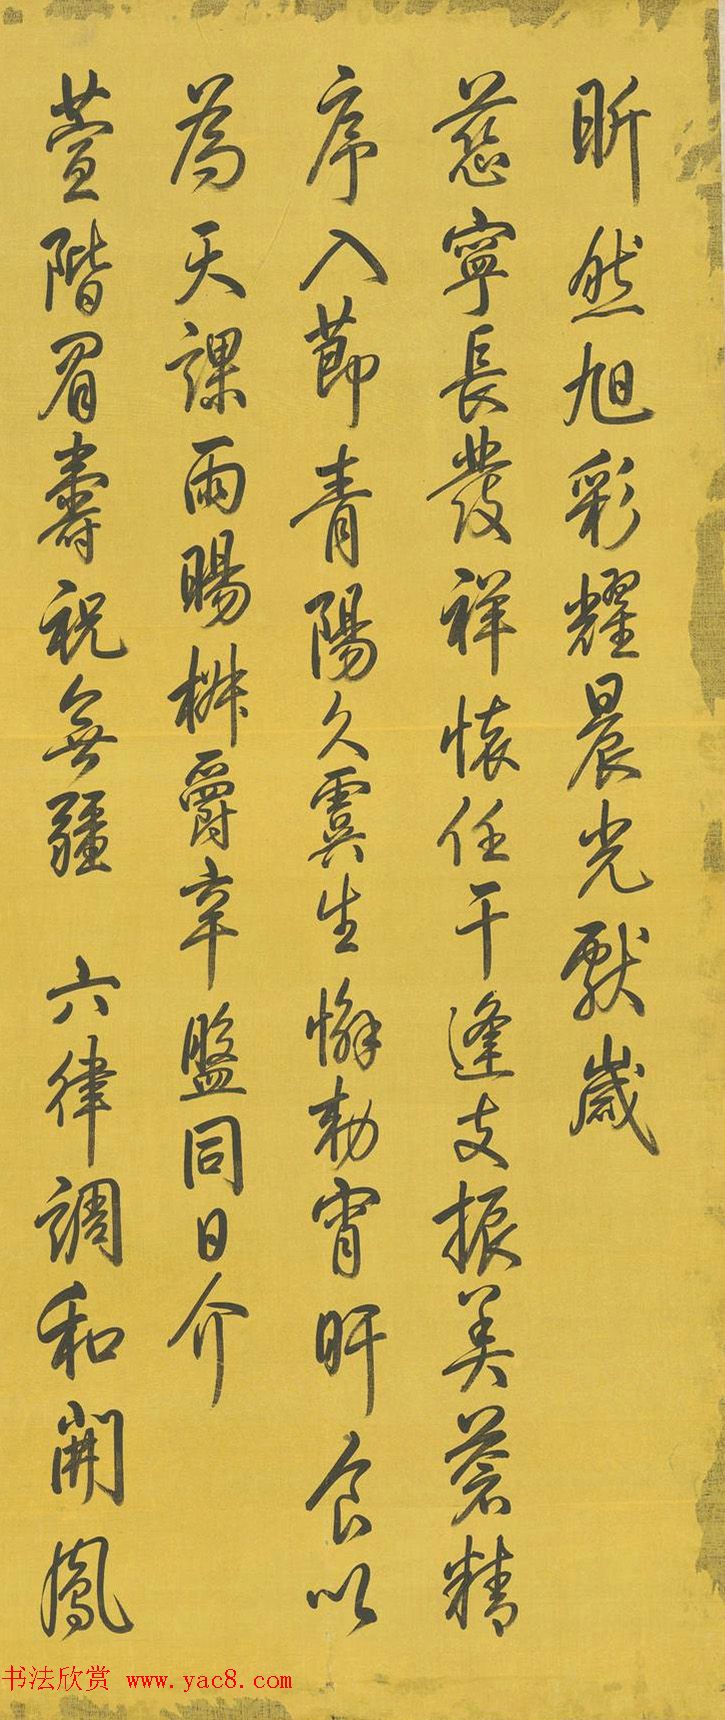 昕然旭彩耀晨光獻歲
慈寧長發祥懷任干逢支振美蒼精
序入節青陽久虞生懈勅宵旰食以
為天課雨暘椒爵辛盤同日介
萱階眉壽祝無疆 六律調和開鳳
书法欣赏 www.yac8.com